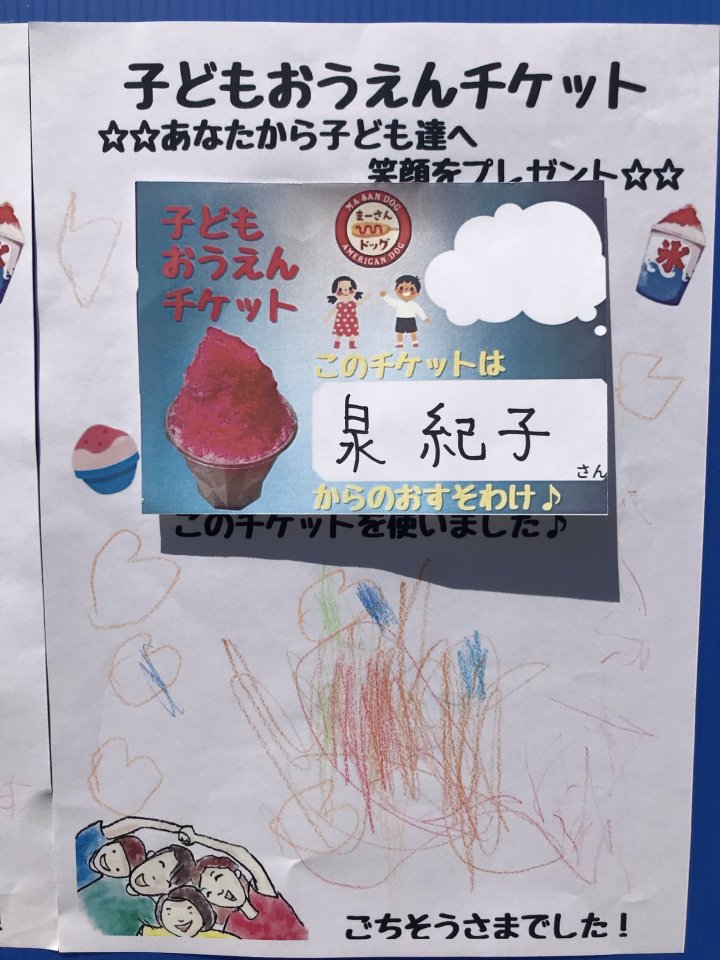 子どもおうえんチケット
☆☆あなたから子ども達へ
笑顔をプレゼント☆☆
子ども
おうえん
チケット
MA-SAN DOG
まーさん
ドッグ
AMERICAN DOG
氷
このチケットは
泉 紀子
さん
からのおすそわけ♪
このチケットを使いました♪
ごちそうさまでした!